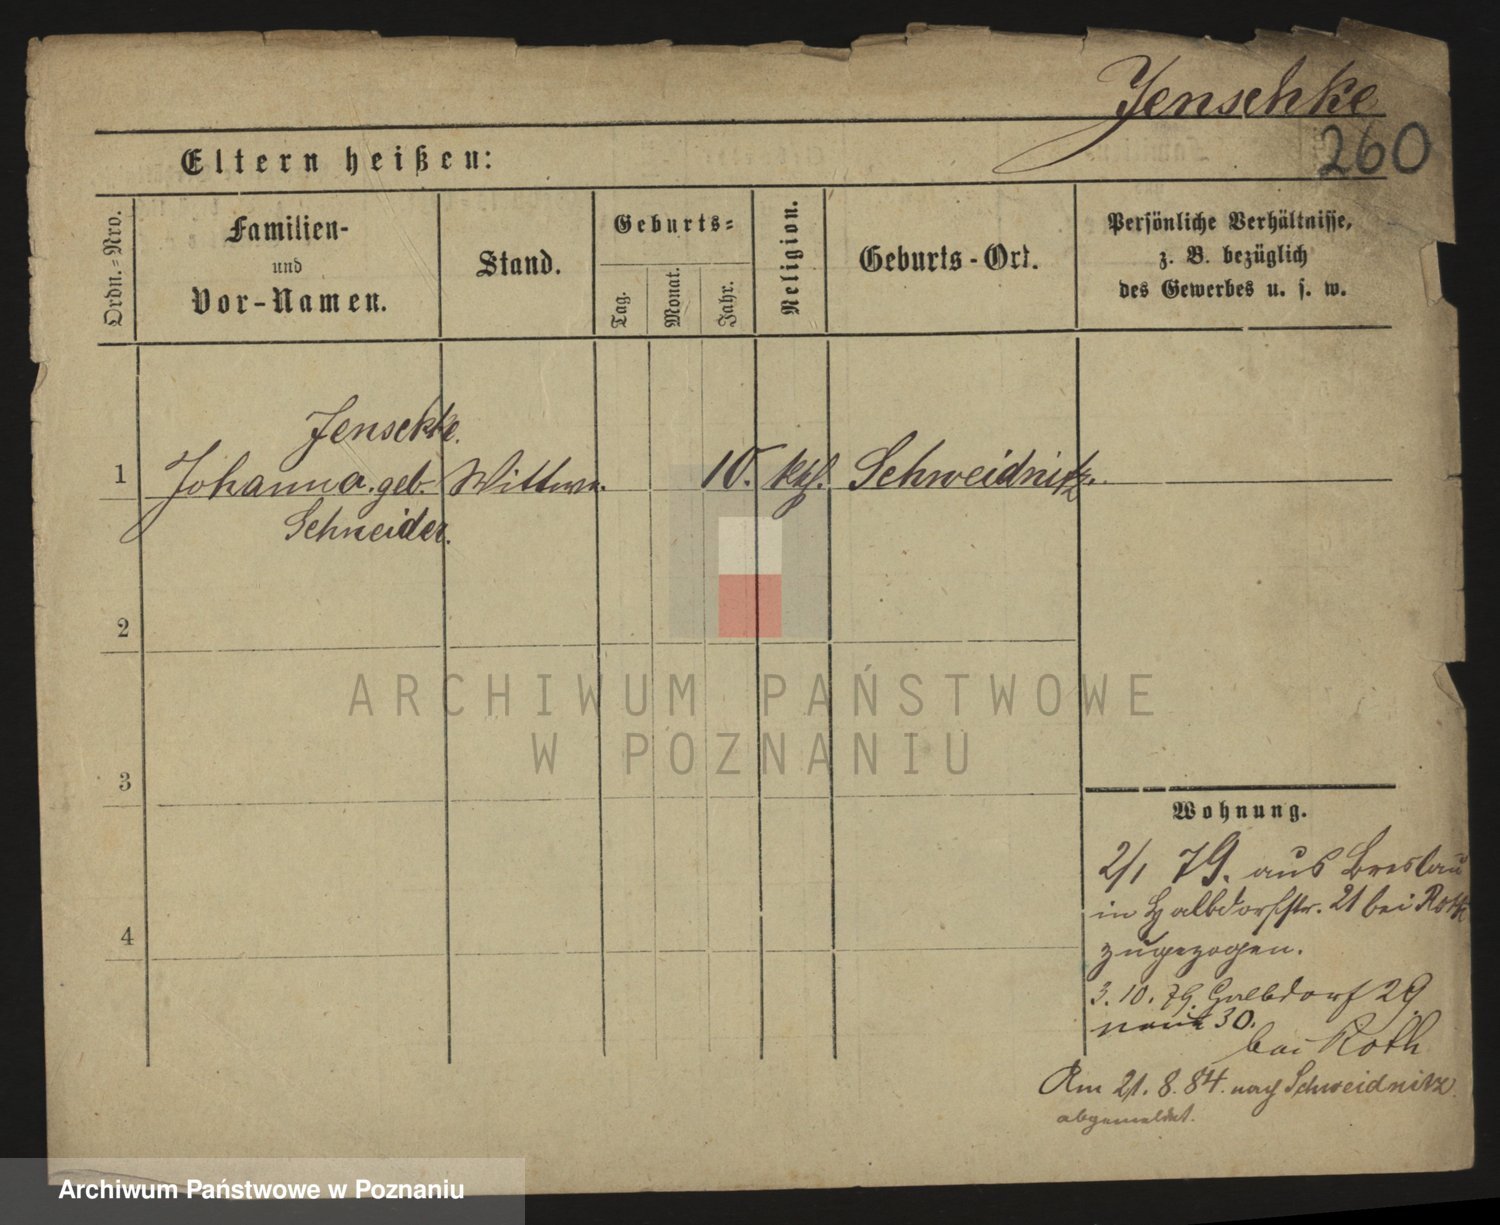 Jenschke
260
Eltern heißen:
Ordn.-Nro.
Familien-
und
Vor-Namen.
Stand.
Geburts-
Tag.
Monat.
Jahr.
Religion.
Geburts-Ort.
Persönliche Verhältnisse,
z. B. bezüglich
des Gewerbes u. s. w.
Jenschke.
1 Johanna geb. Wittwe. 10. kth. Schweidnitz.
Schneider.
2
3
4
Wohnung.
2/1 79. aus Breslau
in Halbdorfstr. 21 bei Roth
zugezogen.
3. 10. 79. Halbdorf 29
30.
bei Roth
Am 21. 8. 84. nach Schweidnitz
abgemeldet.
ARCHIWUM PAŃSTWOWE
W POZNANIU
Archiwum Państwowe w Poznaniu